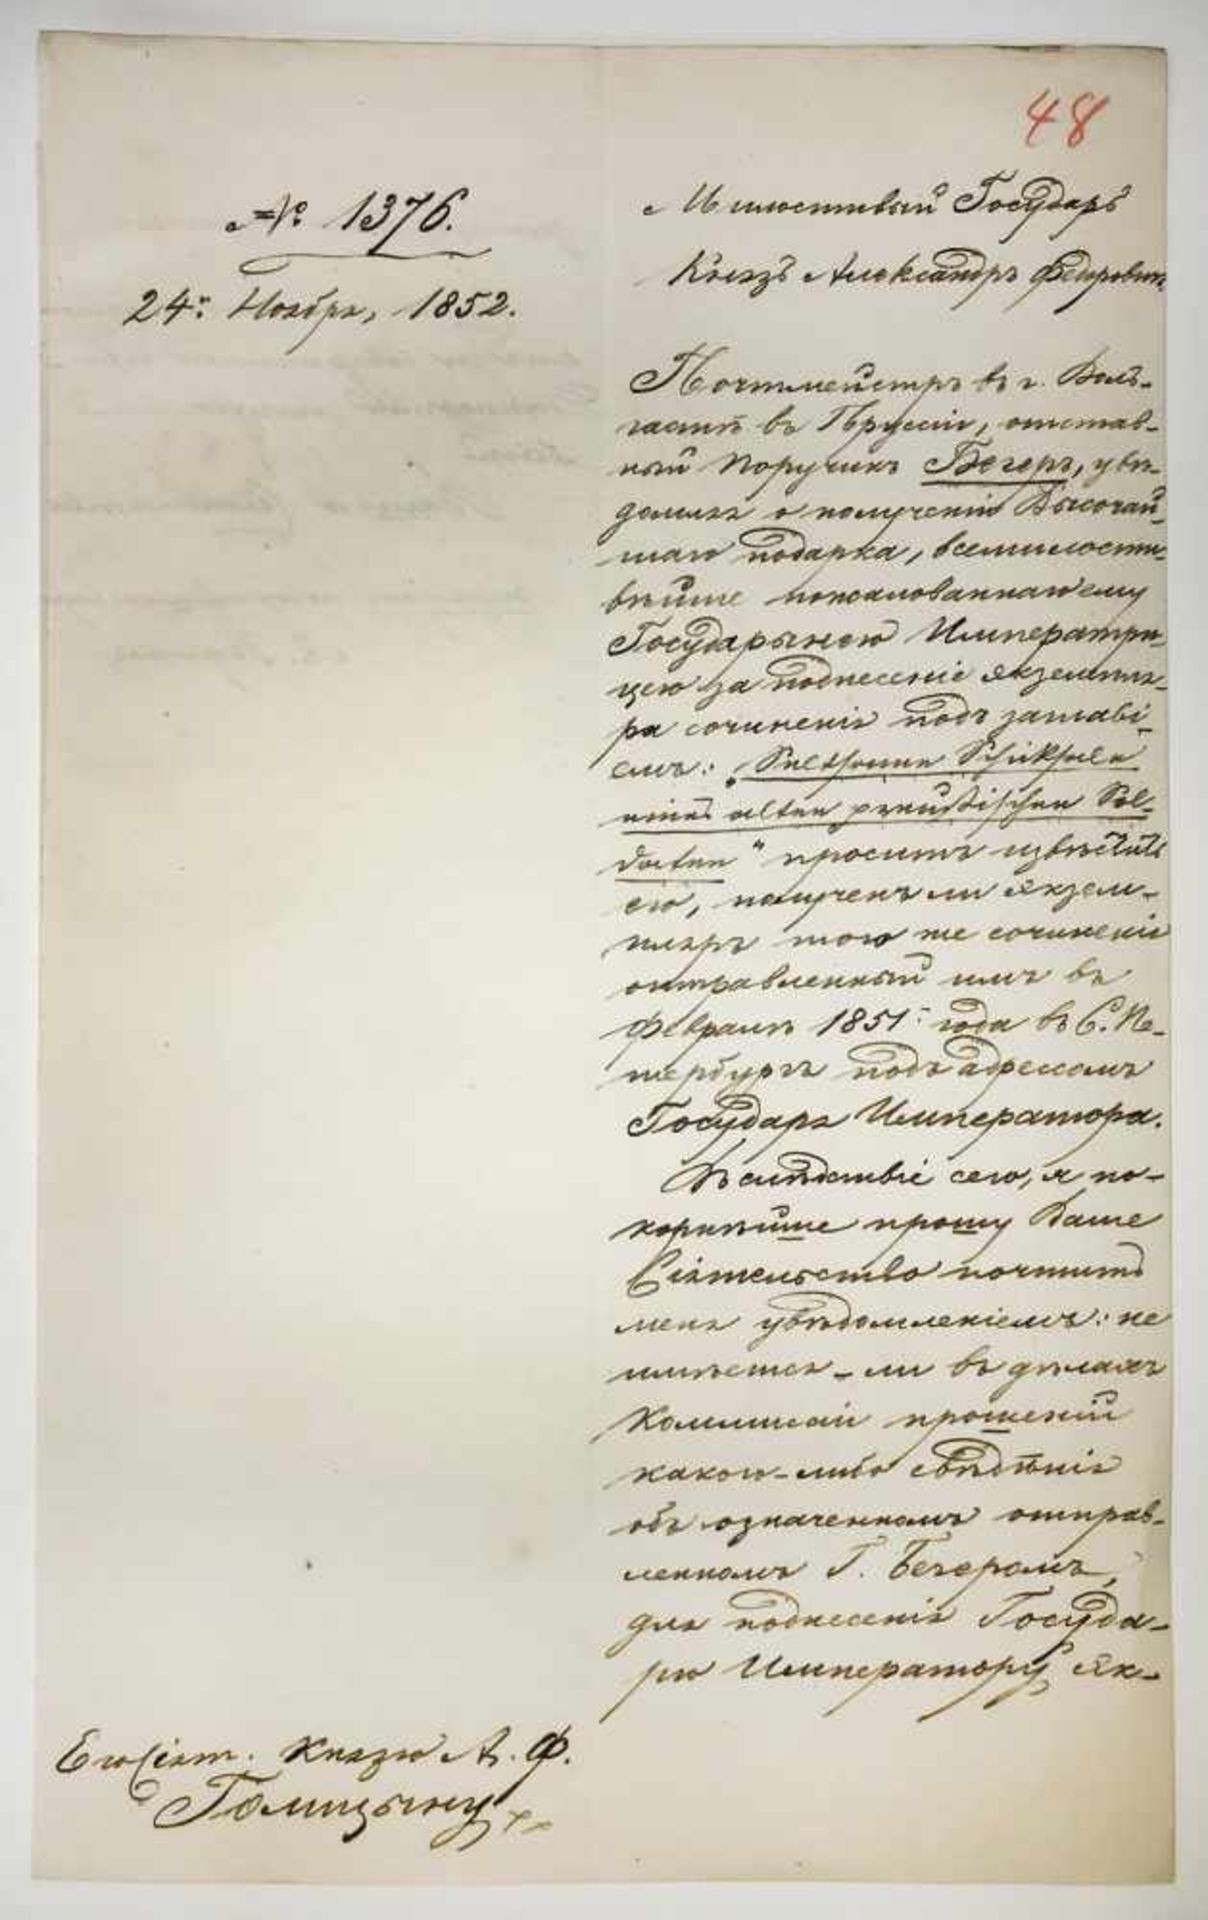 48
№ 1376.
24го Ноября, 1852.
Милостивый Государь
Князь Александръ Федоровичъ
Почтмейстръ въ г. Воль-
гастѣ въ Пруссіи, отстав-
ный Поручикъ Бегеръ, увѣ-
домляя о полученіи Высочай-
шаго подарка, всемилости-
вѣйше пожалованнаго ему
Государынею Императри-
цею за поднесеніе экземпля-
ра сочиненія подъ заглаві-
емъ: „Seltsame Schicksale
eines alten preußischen Sol-
daten" проситъ извѣстить
его, полученъ ли экзем-
пляръ того же сочиненія
отправленный имъ въ
Февралѣ 1851го года въ С. Пе-
тербургъ подъ адресомъ
Государя Императора.
Вслѣдствіе сего, я по-
корнѣйше прошу Ваше
Сіятельство почтить
меня увѣдомленіемъ: не
имѣется-ли въ дѣлахъ
Коммисіи прошеній
какого-либо свѣдѣнія
объ означенномъ отправ-
ленномъ Г. Бегеромъ,
для поднесенія Госуда-
рю Императору, эк-
Его Сіят. Князю А. Ф.
Голицыну